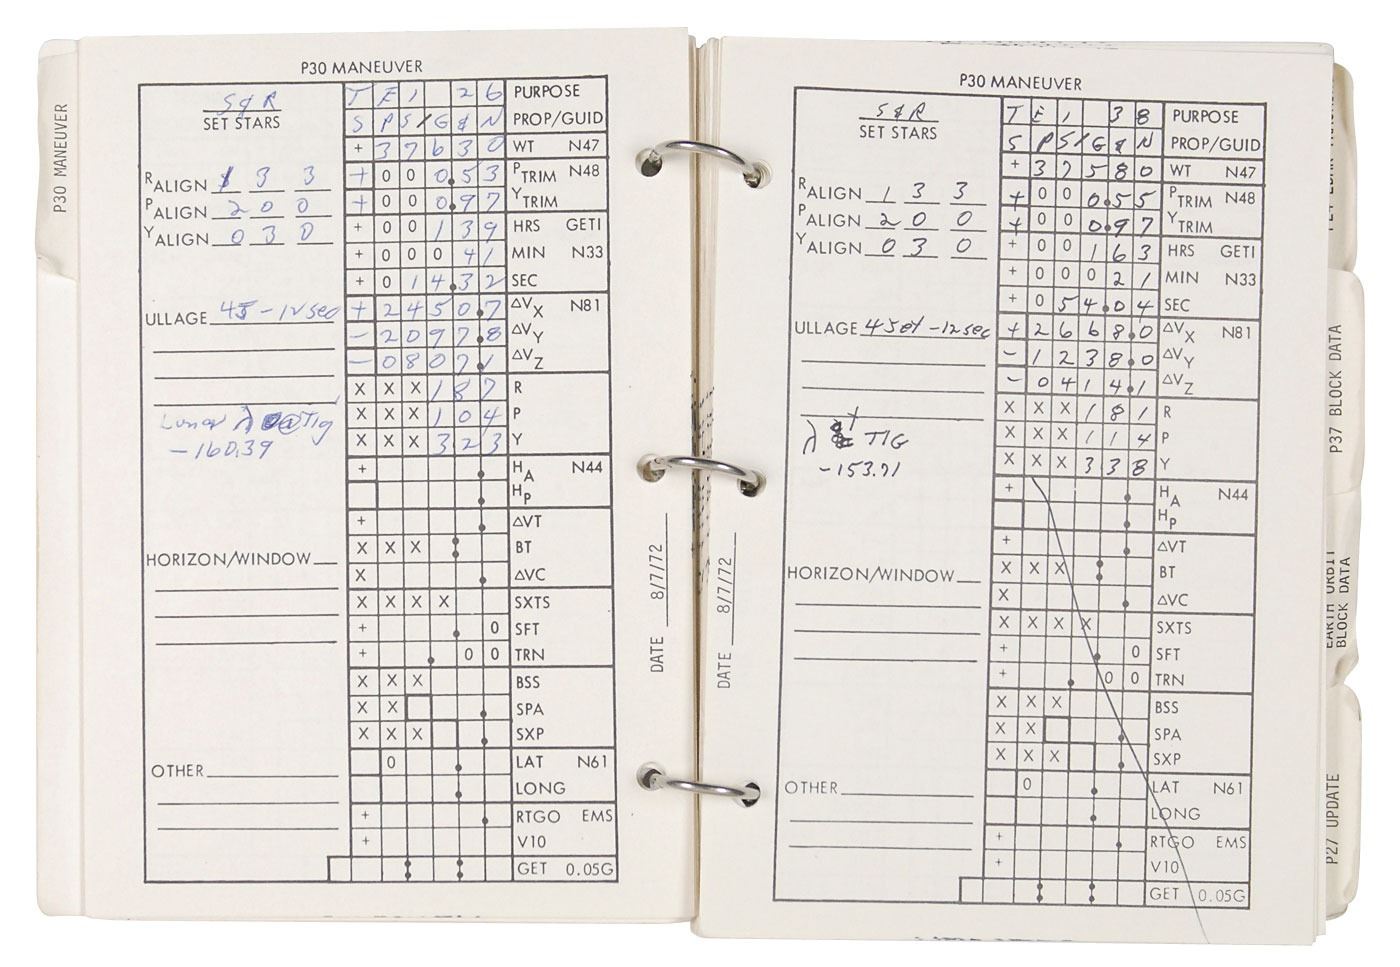 P30 MANEUVER
P30 MANEUVER
S & R
SET STARS
R ALIGN 1 3 3
P ALIGN 2 0 0
Y ALIGN 0 3 0
ULLAGE 4J - 12 sec
Lunar λ @ TIG
-160.39
HORIZON/WINDOW
OTHER
T E I 2 6 PURPOSE
S P S / G & N PROP/GUID
+ 3 7 6 3 0 WT N47
+ 0 0 0.5 3 P TRIM N48
+ 0 0 0.9 7 Y TRIM
+ 0 0 1 3 9 HRS GETI
+ 0 0 0 4 1 MIN N33
+ 0 1 4.3 2 SEC
+ 2 4 5 0.7 ΔVX N81
- 2 0 9 7.8 ΔVY
- 0 8 0 7.1 ΔVZ
X X X 1 8 7 R
X X X 1 0 4 P
X X X 3 2 3 Y
+ . HA N44
. HP
+ . ΔVT
X X X : BT
X . ΔVC
X X X X SXTS
+ . 0 SFT
+ . 0 0 TRN
X X X BSS
X X . SPA
X X X . SXP
0 . LAT N61
. LONG
+ . RTGO EMS
+ V10
: : GET 0.05G
DATE 8/7/72
P30 MANEUVER
S & R
SET STARS
R ALIGN 1 3 3
P ALIGN 2 0 0
Y ALIGN 0 3 0
ULLAGE 4 jet - 12 sec
λ TIG
-153.71
HORIZON/WINDOW
OTHER
T E I 3 8 PURPOSE
S P S / G & N PROP/GUID
+ 3 7 5 8 0 WT N47
+ 0 0 0.5 5 P TRIM N48
+ 0 0 0.9 7 Y TRIM
+ 0 0 1 6 3 HRS GETI
+ 0 0 0 2 1 MIN N33
+ 0 5 4.0 4 SEC
+ 2 6 6 8.0 ΔVX N81
- 1 2 3 8.0 ΔVY
- 0 4 1 4.1 ΔVZ
X X X 1 8 1 R
X X X 1 1 4 P
X X X 3 3 8 Y
+ . HA N44
. HP
+ . ΔVT
X X X : BT
X . ΔVC
X X X X SXTS
+ . 0 SFT
+ . 0 0 TRN
X X X BSS
X X . SPA
X X X . SXP
0 . LAT N61
. LONG
+ . RTGO EMS
+ V10
: : GET 0.05G
DATE 8/7/72
P37 BLOCK DATA
EARTH ORBIT
BLOCK DATA
P27 UPDATE